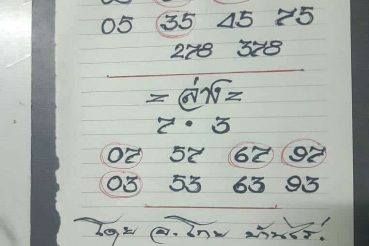 05 35 45 75
278 378
= ล่าง =
7 • 3
07 57 67 97
03 53 63 93
โดย อ.โกย บ้านไร่.